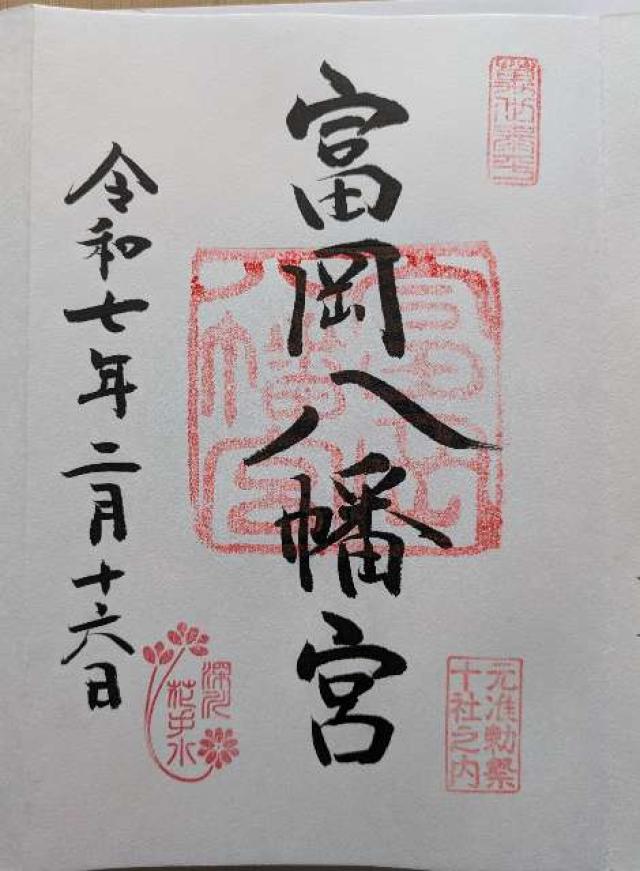 富岡八幡宮
元准勅祭
十社之内
深川
花手水
令和七年二月十六日
富岡
八幡宮